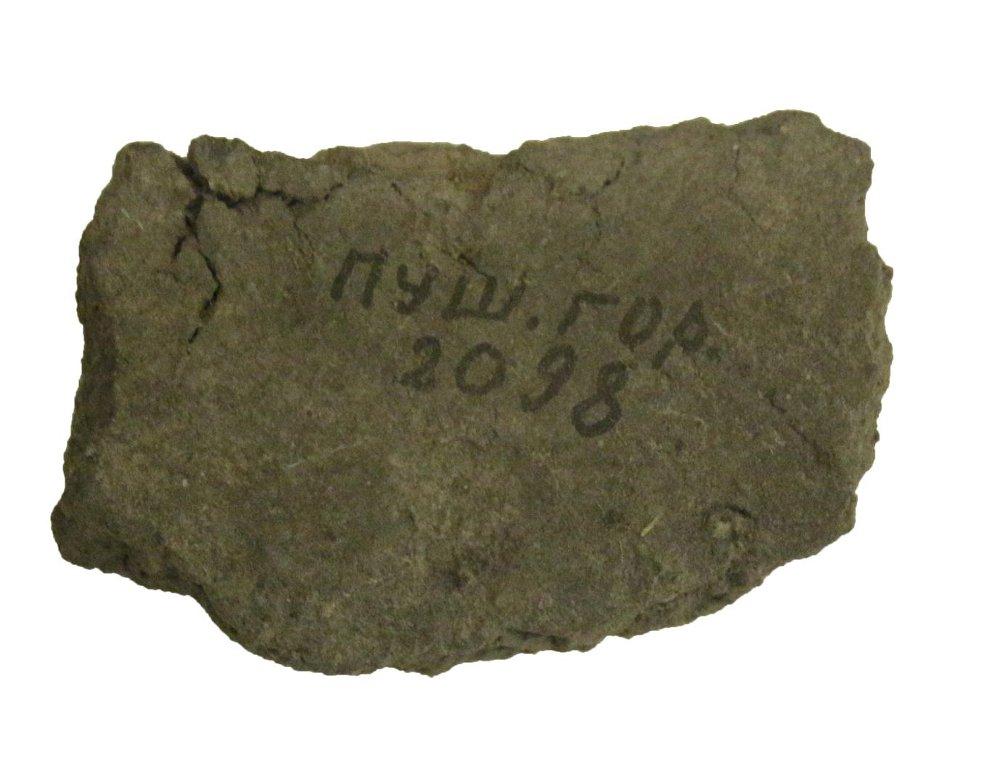 пуш. гор.
2098